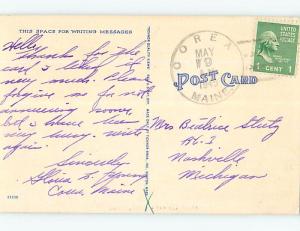 THIS SPACE FOR WRITING MESSAGES
Hello,
thanks for the
card. I like it
very much. Please
forgive me for not
answering sooner,
but I have been
very busy. Write
again.
Sincerely
Corea, Maine
COREA
MAY
9
MAINE
UNITED STATES
POSTAGE
1 CENT 1
POST CARD
Mrs Beatrice Stutz
R. 3
Nashville
Michigan